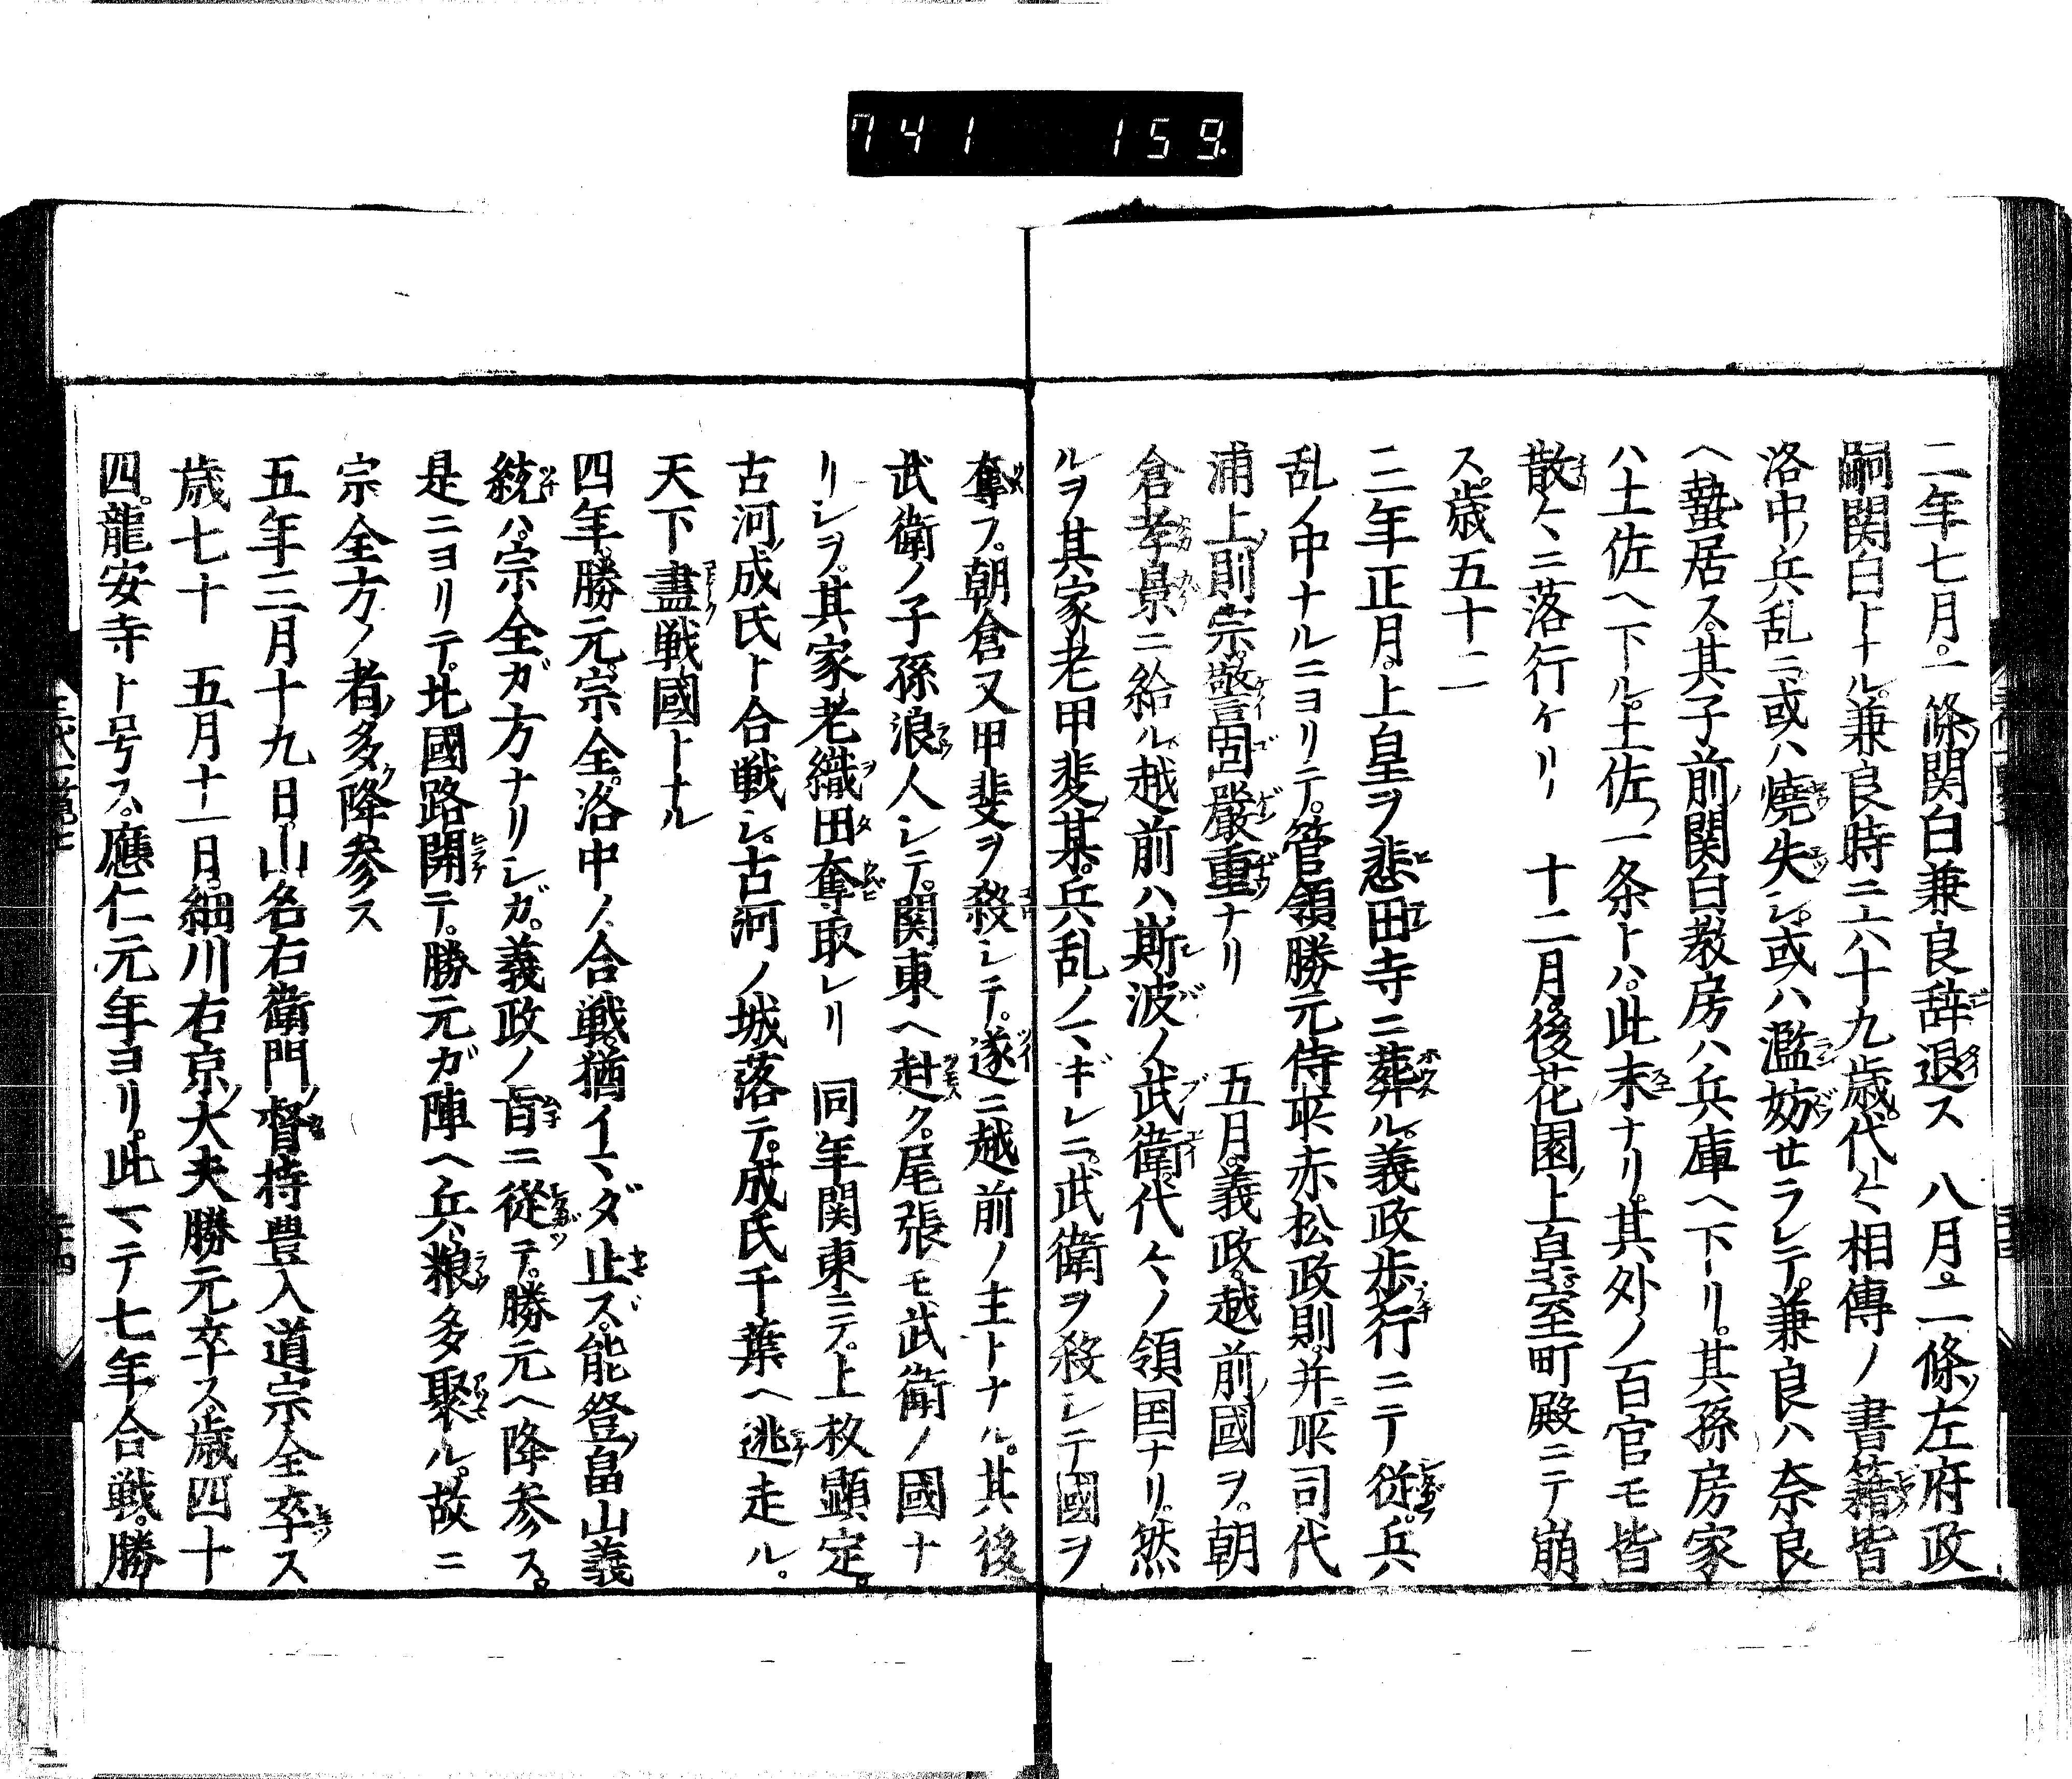 741 159.
二年七月。一條ノ関白兼良辞退ス 八月。二條ノ左府政
嗣関白トナル。兼良時ニ六十九歳。代々相傳ノ書籍皆
洛中ノ兵乱ニ。或ハ燒失シ。或ハ濫妨セラレテ。兼良ハ奈良
ヘ蟄居ス。其子前ノ関白教房ハ兵庫ヘ下リ。其孫房家
ハ土佐ヘ下ル。土佐ノ一条トハ。此末ナリ。其外ノ百官モ皆
散々ニ落行ケリ 十二月。後花園ノ上皇。室町殿ニテ崩
ス。歳五十二
三年正月。上皇ヲ悲田寺ニ葬ル。義政歩行ニテ従。兵
乱ノ中ナルニヨリテ。管領勝元侍所赤松政則。并ニ所司代
浦上ノ則宗。警固嚴重ナリ 五月。義政。越前ノ國ヲ。朝
倉孝景ニ給ル。越前ハ斯波ノ武衛。代々ノ領国ナリ。然
ルヲ其家老甲斐ノ某。兵乱ノマギレニ。武衛ヲ殺シテ國ヲ
奪フ。朝倉又甲斐ヲ殺シテ。遂ニ越前ノ主トナル。其後
武衛ノ子孫浪人シテ。関東ヘ赴ク。尾張モ武衛ノ國ナ
リシヲ。其家老織田奪取レリ 同年関東ニテ。上杦顯定。
古河ノ成氏ト合戦シ。古河ノ城落テ。成氏千葉ヘ逃走ル。
天下盡戦國トナル
四年。勝元。宗全。洛中ノ合戦。猶イマダ止ズ。能登ノ畠山義
統ハ。宗全ガ方ナリシガ。義政ノ旨ニ從テ。勝元ヘ降参ス。
是ニヨリテ。北國路開テ。勝元ガ陣ヘ兵粮多聚ル。故ニ
宗全方ノ者。多ク降参ス
五年三月十九日。山名右衛門ノ督持豊入道宗全卒ス
歳七十 五月十一日。細川右京ノ大夫勝元卒ス。歳四十
四。龍安寺ト号ス。應仁元年ヨリ。此マテ七年ノ合戦。勝